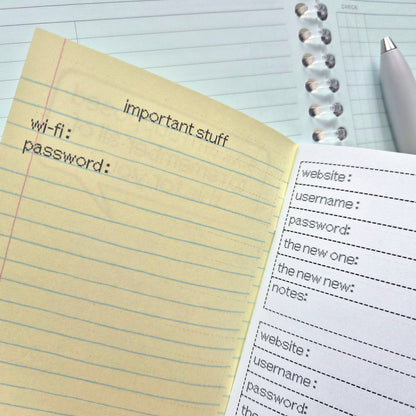 CHECK
important stuff
wi-fi:
password:
website:
username:
password:
the new one:
the new new:
notes:
website:
username:
password:
the new one: